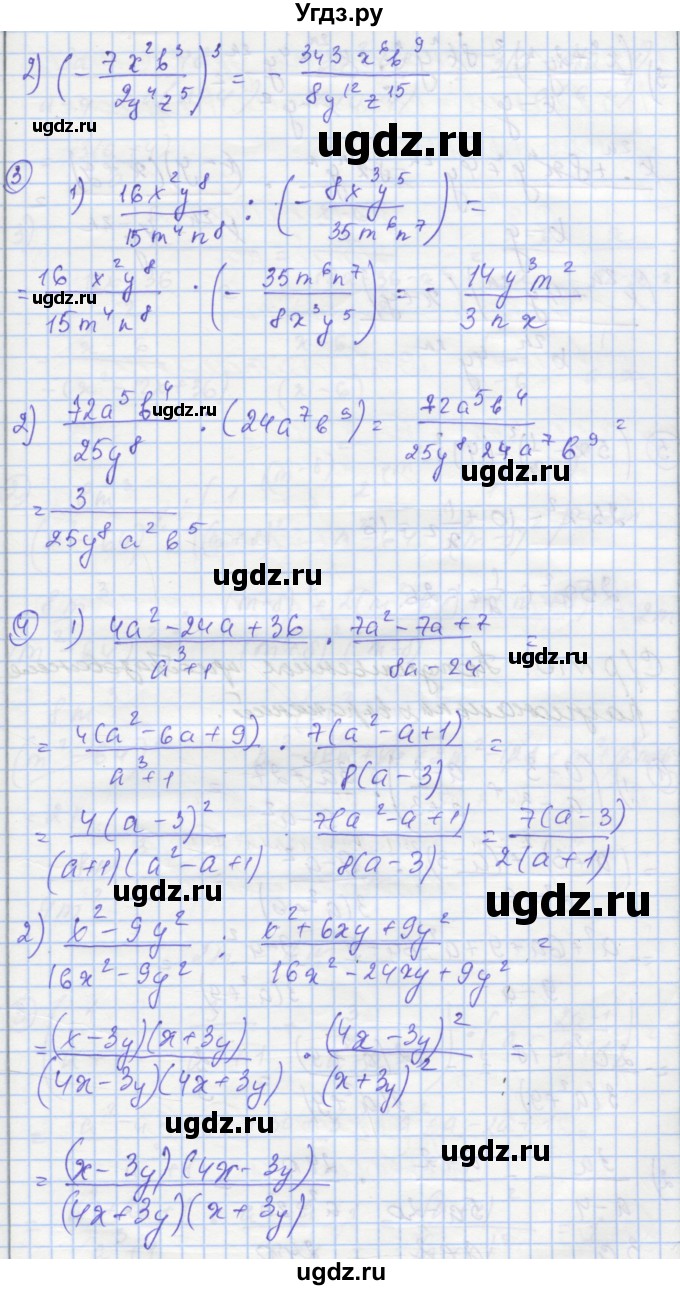 Угдз.ру
2) (- 7x²b³ / 2y⁴z⁵)³ = - 343 x⁶b⁹ / 8y¹²z¹⁵
ugdz.ru
ugdz.ru
③ 1) 16x²y⁸ / 15m⁴n⁸ : (- 8x³y⁵ / 35m⁶n⁷) =
= 16 x²y⁸ / 15m⁴n⁸ · (- 35m⁶n⁷ / 8x³y⁵) = - 14y³m² / 3nx
ugdz.ru
ugdz.ru
2) 72a⁵b⁴ / 25y⁸ : (24a⁷b⁹) = 72a⁵b⁴ / 25y⁸·24a⁷b⁹ =
ugdz.ru
ugdz.ru
= 3 / 25y⁸a²b⁵
ugdz.ru
④ 1) 4a²-24a+36 / a³+1 · 7a²-7a+7 / 8a-24 =
ugdz.ru
ugdz.ru
= 4(a²-6a+9) / a³+1 · 7(a²-a+1) / 8(a-3) =
= 4(a-3)² / (a+1)(a²-a+1) · 7(a²-a+1) / 8(a-3) = 7(a-3) / 2(a+1)
ugdz.ru
ugdz.ru
2) x²-9y² / 16x²-9y² : x²+6xy+9y² / 16x²-24xy+9y² =
= (x-3y)(x+3y) / (4x-3y)(4x+3y) · (4x-3y)² / (x+3y)² =
ugdz.ru
ugdz.ru
= (x-3y)(4x-3y) / (4x+3y)(x+3y)
ugdz.ru